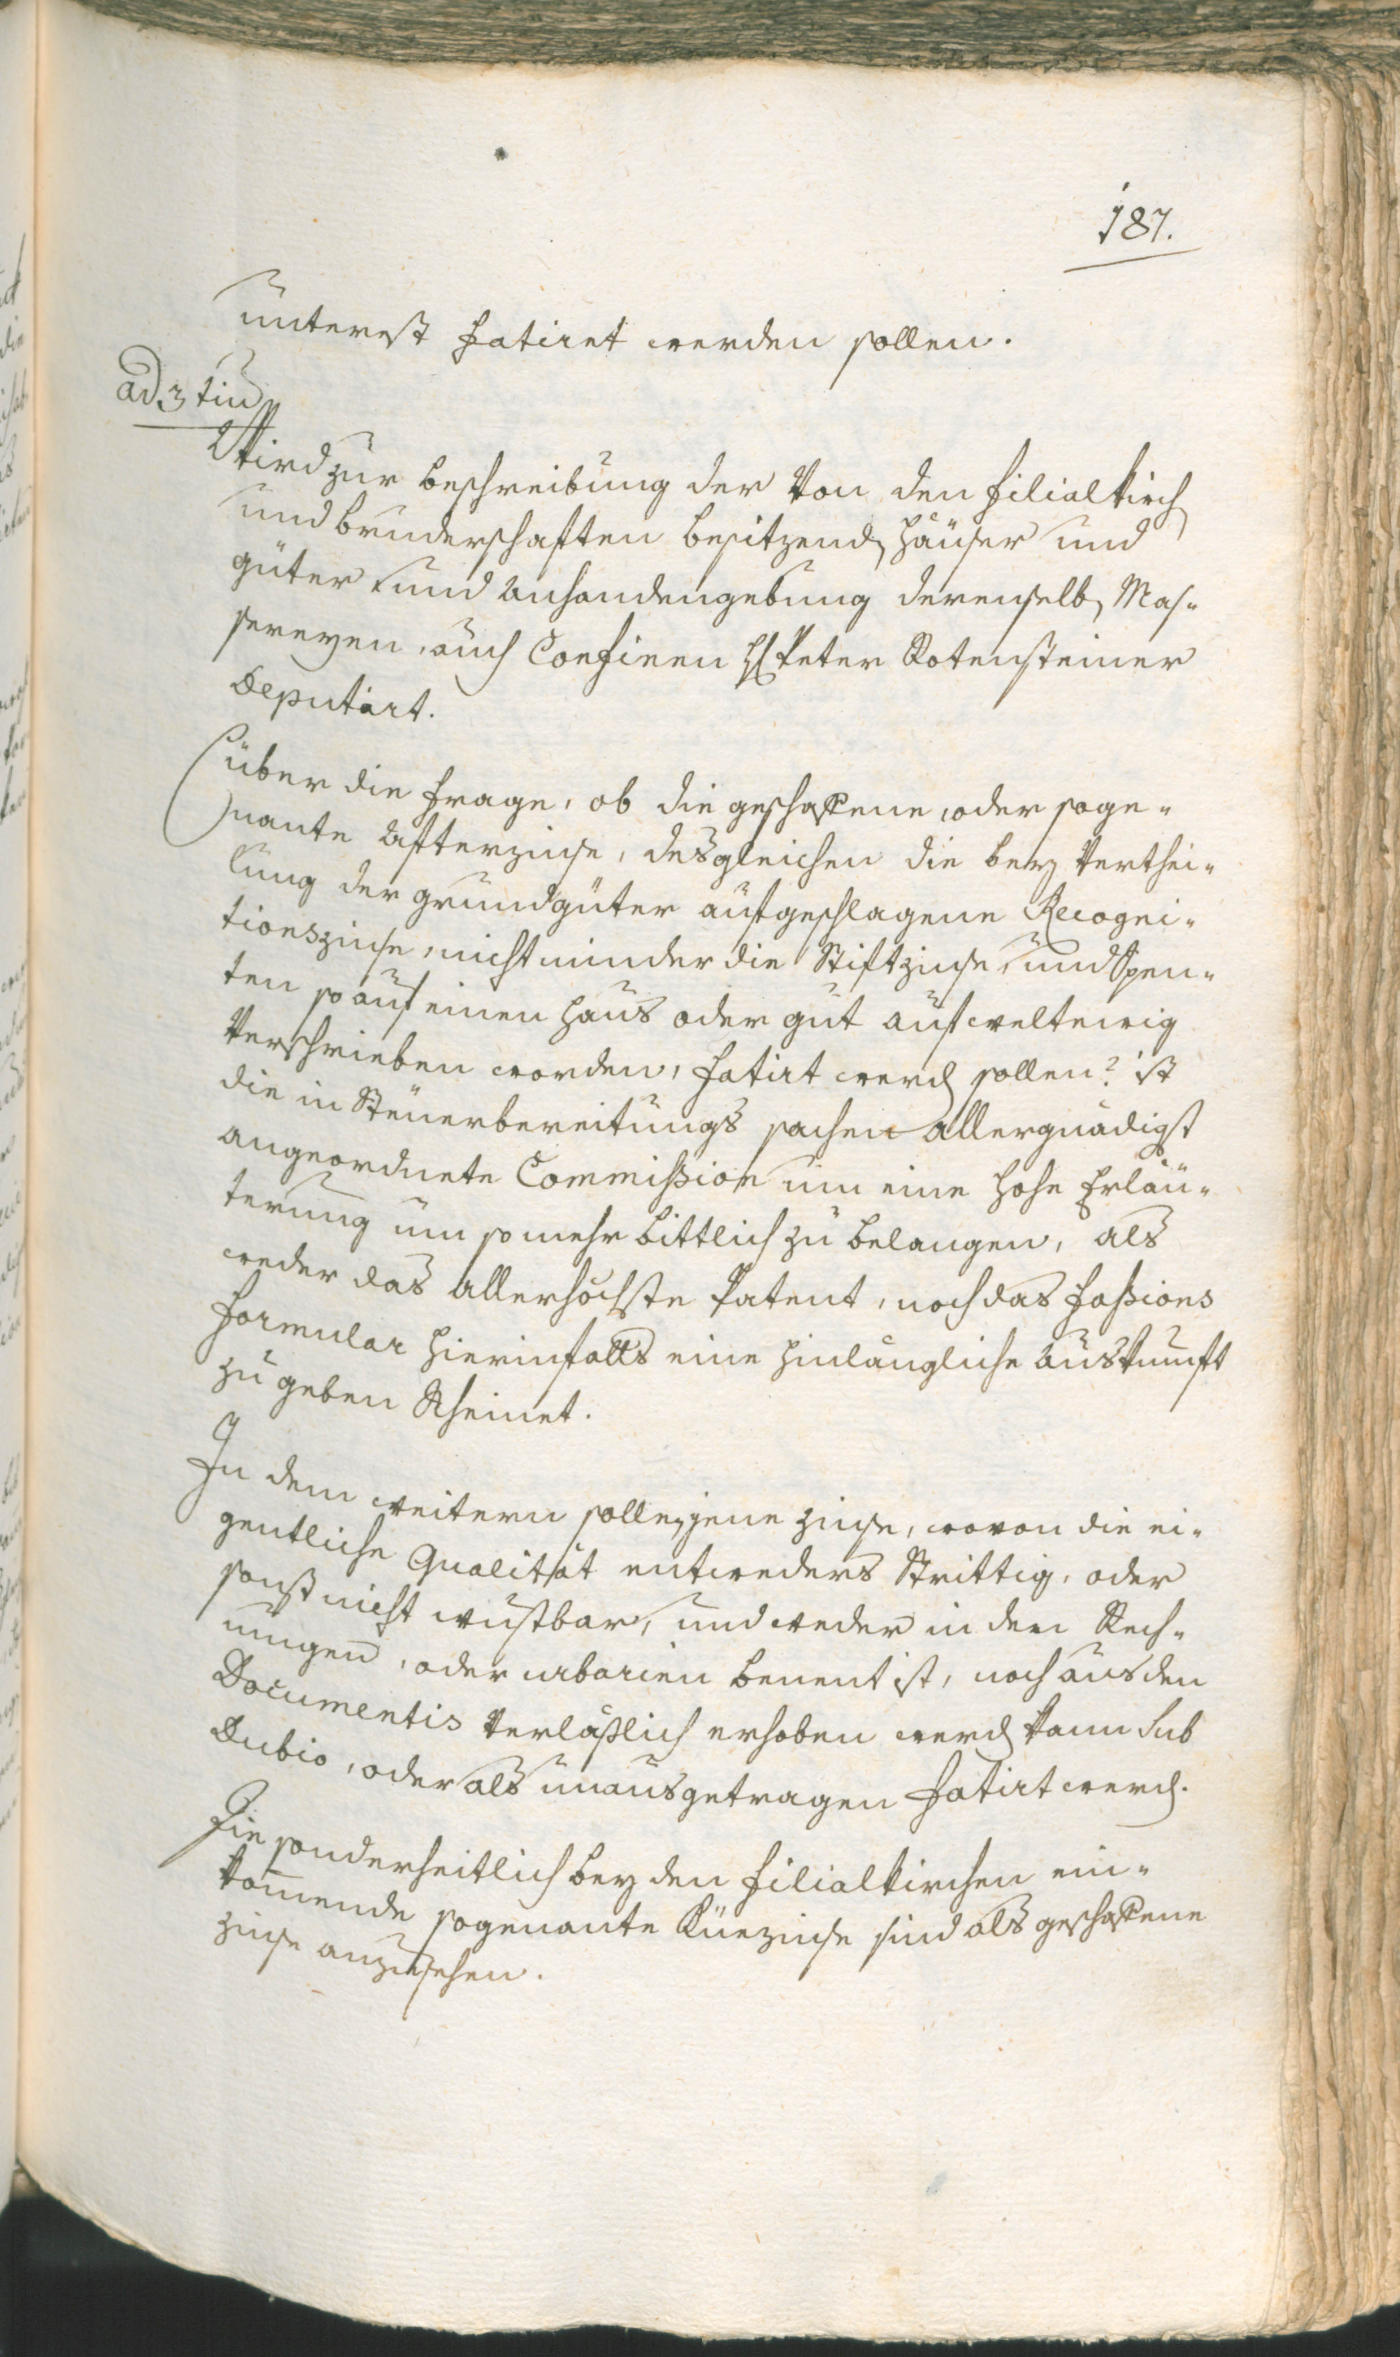 187.
unterest fatiret werden sollen.
ad 3tiu
Wird zur beschreibung der von den filialkirch
und bruderschaften besitzend häuser und
güter und Anhandengebung derenselb Mas-
sereyen, auch Confinen H: Peter Rotensteiner
deputirt.
über die frage, ob die geschaffene, oder soge-
nante Afterzinse, desgleichen die bey Verthei-
lung der grundgüter aufgeschlagene Recogni-
tionszinse, nicht minder die Stiftzinse, und Spen-
ten so auf einen haus oder gut auf weltewig
verschrieben worden, fatirt werd sollen? ist
die in Steuerbereitungs sachen allergnädigst
angeordnete Commißion um eine hohe Erläu-
terung um so mehr bittlich zu belangen, als
weder das allerhöchste Patent, noch das faßions
formular hierinfalls eine hinlängliche Auskunft
zu geben scheinet.
In dem weitern sollen jene zinse, wovon die ei-
gentliche Qualität entweders strittig, oder
sonst nicht wustbar, und weder in den Rech-
nungen, oder urbarien benent ist, noch aus den
Documentis verläßlich erhoben werd kann sub
Dubio, oder als unausgetragen fatirt werd.
Die sonderheitlich bey den filialkirchen ein-
komende sogenante Küezinse sind als geschaffene
zinse anzusehen.